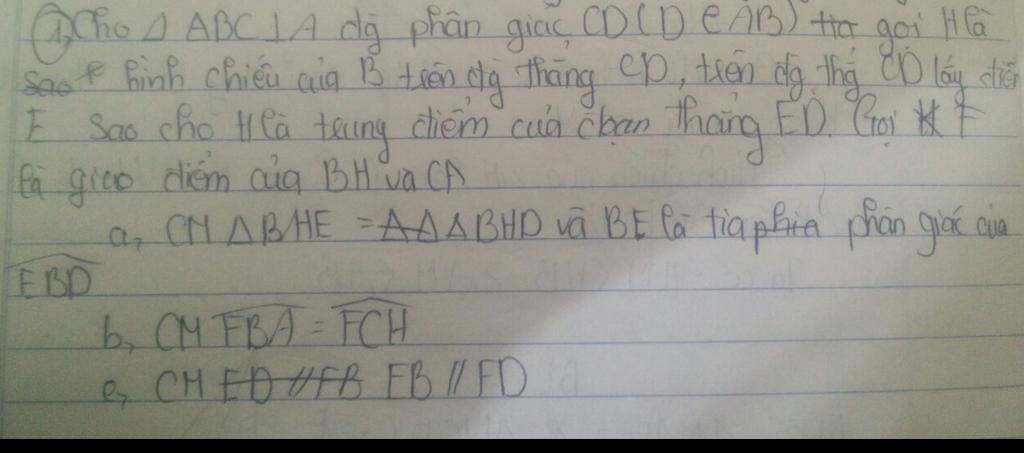 1, Cho Δ ABC ⊥ A đg phân giác CD (D ∈ AB) gọi H là
hình chiếu của B trên đg thẳng CD, trên đg thg CD lấy điể
E sao cho H là trung điểm của đoạn thẳng ED. Gọi F
là giao điểm của BH và CA
a, CM Δ BHE = Δ BHD và BE là tia phân giác của
EBD
b, CM FBA = FCH
c, CM EB // FD